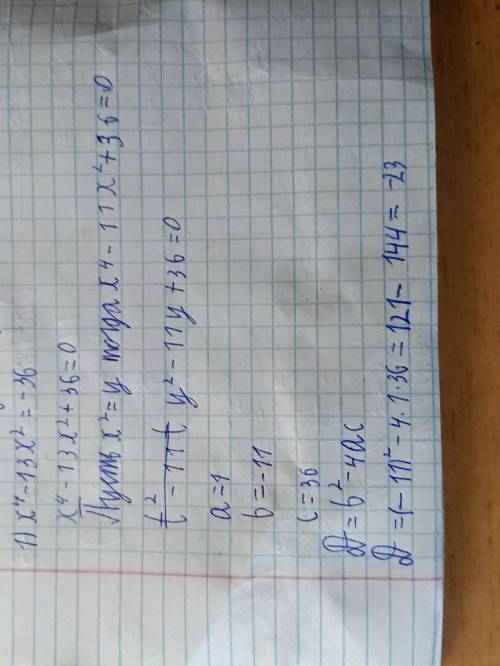 1) x⁴-13x²=-36
x⁴-13x²+36=0
Пусть x²=y тогда x⁴-11x²+36=0
t²-11t y²-11y+36=0
a=1
b=-11
c=36
D=b²-4ac
D=(-11)²-4·1·36=121-144=-23